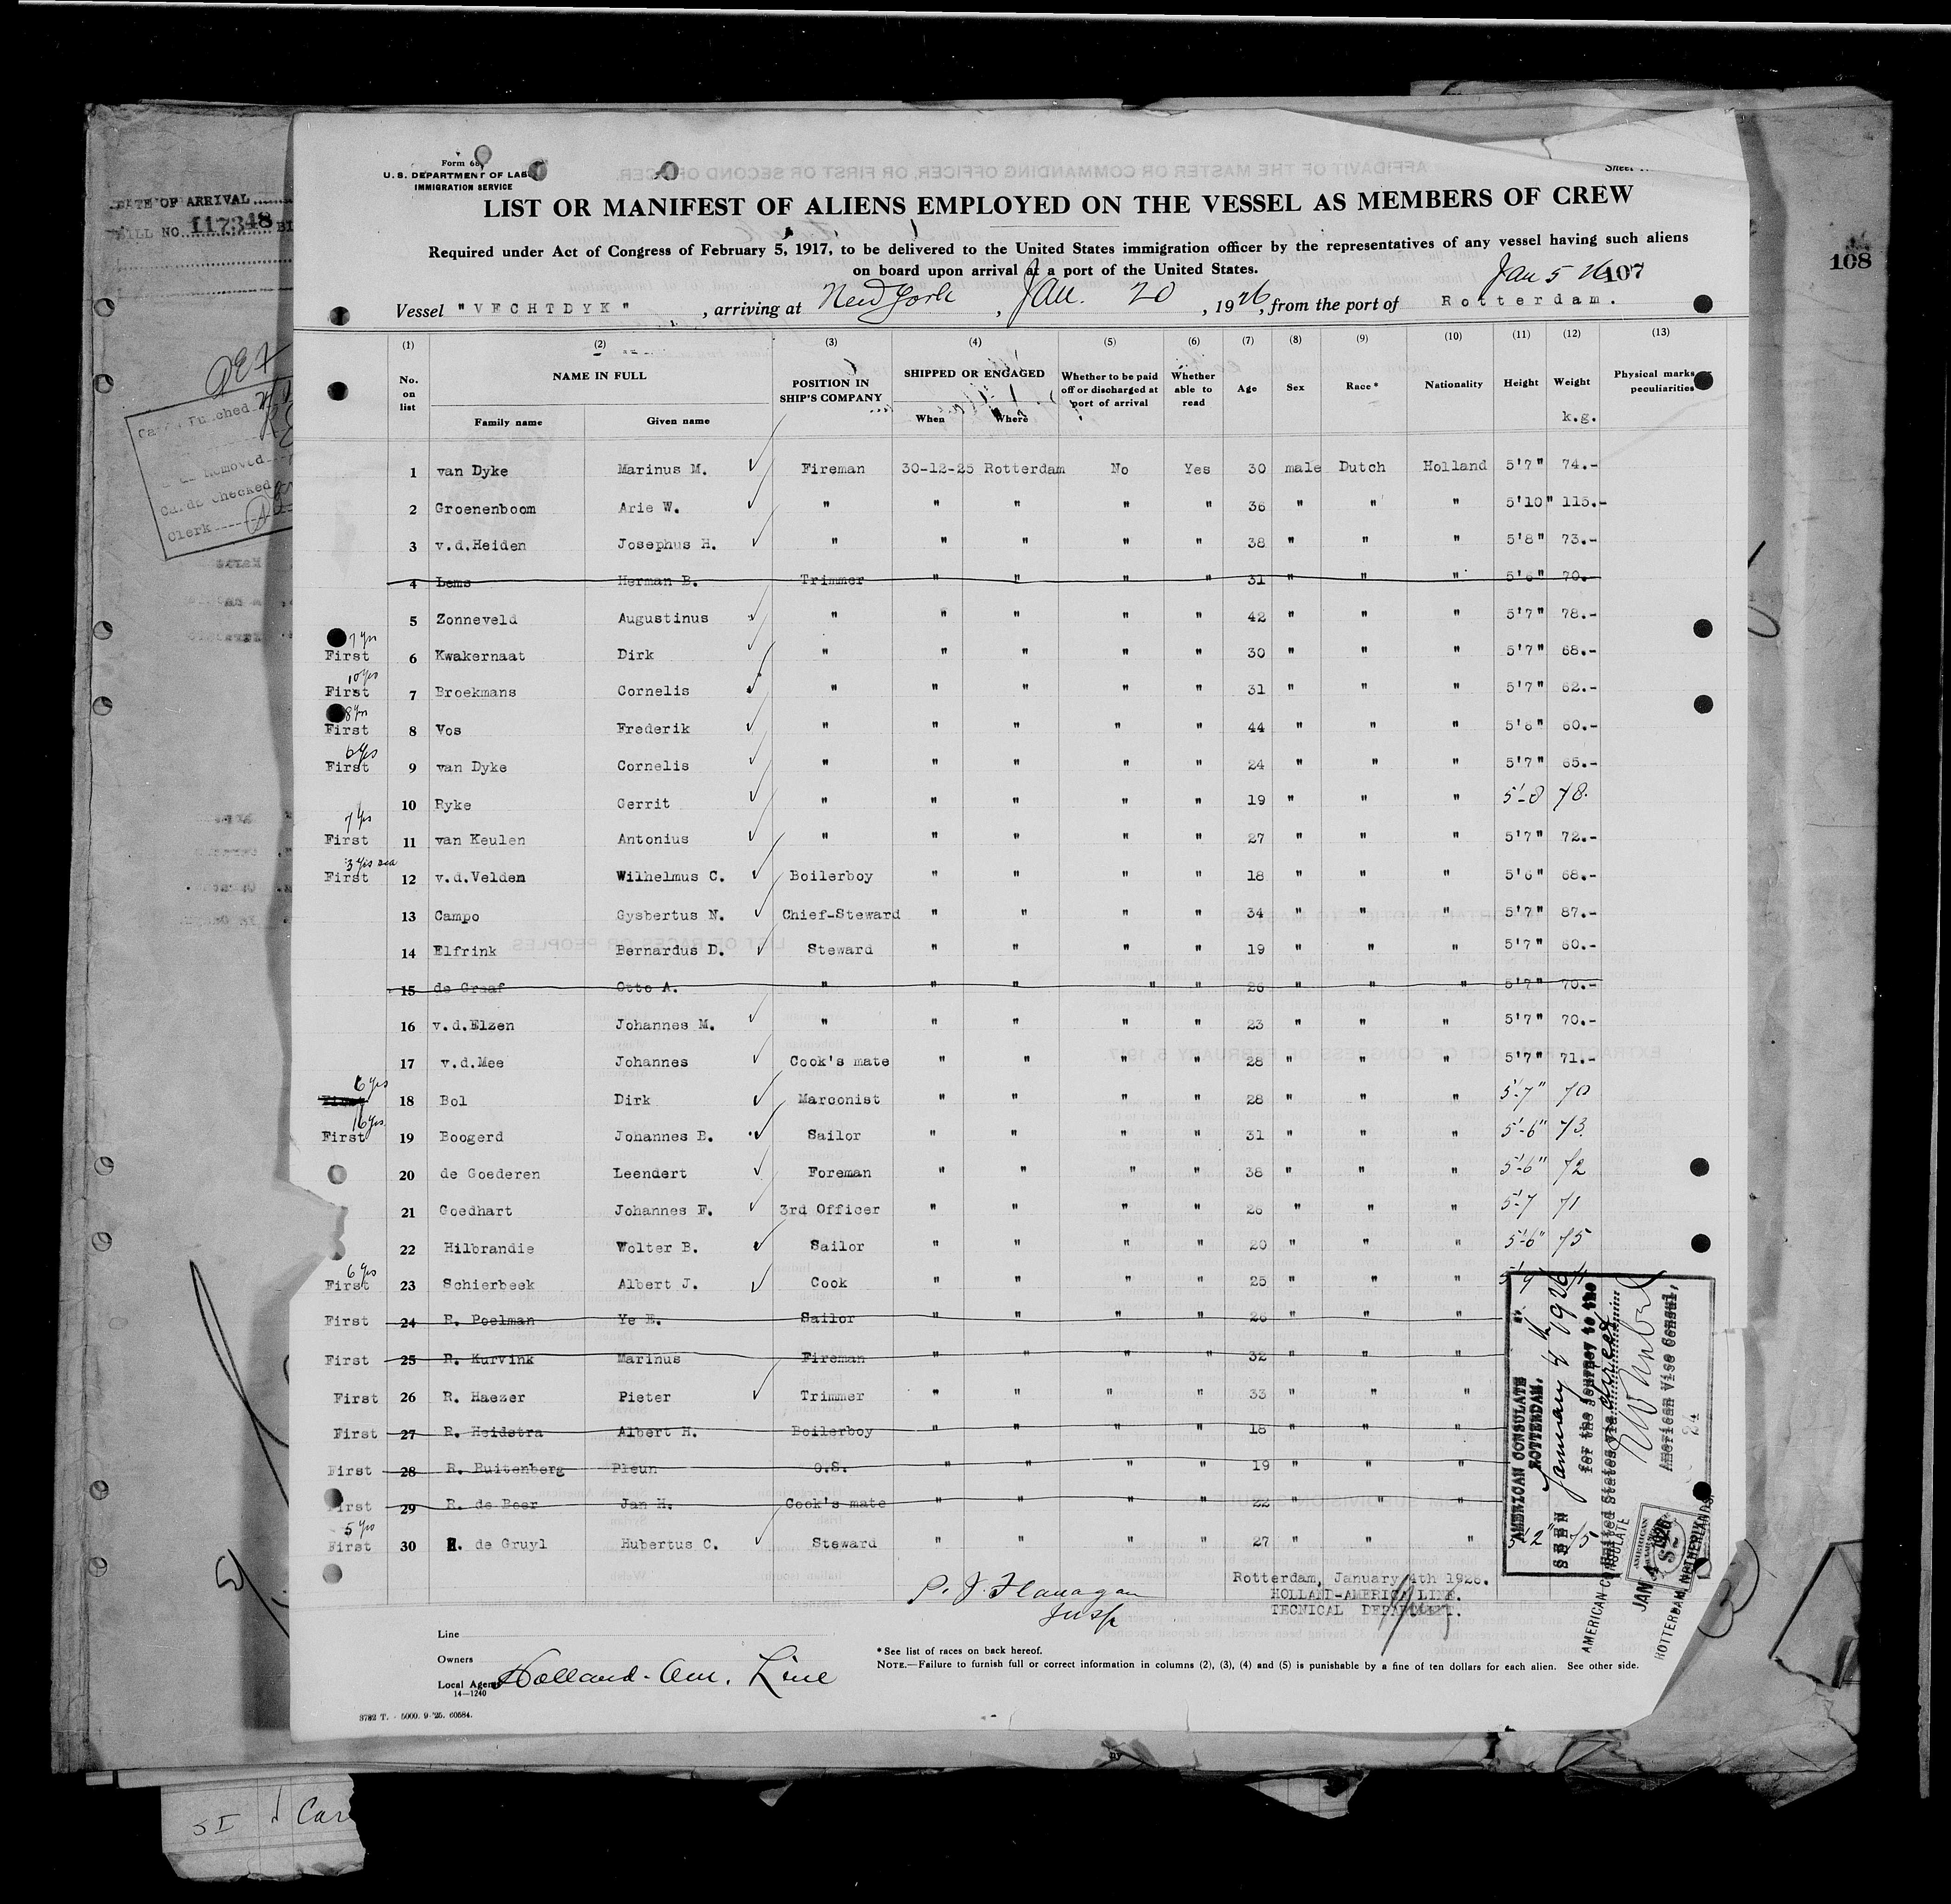 Form 68
U. S. DEPARTMENT OF LAB
IMMIGRATION SERVICE
LIST OR MANIFEST OF ALIENS EMPLOYED ON THE VESSEL AS MEMBERS OF CREW
Required under Act of Congress of February 5, 1917, to be delivered to the United States immigration officer by the representatives of any vessel having such aliens
on board upon arrival at a port of the United States.
Jan 5 26 107
108
Vessel "VECHTDYK", arriving at New York, Jan. 20, 1926, from the port of Rotterdam.
DATE OF ARRIVAL
BILL NO 117348
Cards Punched
Removed
Cards Checked
Clerk
(1) (2) (3) (4) (5) (6) (7) (8) (9) (10) (11) (12) (13)
No. on list NAME IN FULL Family name Given name POSITION IN SHIP'S COMPANY SHIPPED OR ENGAGED When Where Whether to be paid off or discharged at port of arrival Whether able to read Age Sex Race* Nationality Height Weight k.g. Physical marks or peculiarities
1 van Dyke Marinus M. ✓ Fireman 30-12-25 Rotterdam No Yes 30 male Dutch Holland 5'7" 74.-
2 Groenenboom Arie W. ✓ " " " " " 36 " " " 5'10" 115.-
3 v.d.Heiden Josephus H. ✓ " " " " " 38 " " " 5'8" 73.-
4 Lems Herman B. Trimmer " " " " 31 " " " 5'6" 70.-
5 Zonneveld Augustinus ✓ " " " " " 42 " " " 5'7" 78.-
7 yrs
First 6 Kwakernaat Dirk ✓ " " " " " 30 " " " 5'7" 68.-
10 yrs
First 7 Broekmans Cornelis ✓ " " " " " 31 " " " 5'7" 62.-
8 yrs
First 8 Vos Frederik ✓ " " " " " 44 " " " 5'6" 60.-
6 yrs
First 9 van Dyke Cornelis ✓ " " " " " 24 " " " 5'7" 65.-
10 Ryke Gerrit ✓ " " " " " 19 " " " 5'-8 78.
7 yrs
First 11 van Keulen Antonius ✓ " " " " " 27 " " " 5'7" 72.-
3 yrs sea
First 12 v.d.Velden Wilhelmus C. ✓ Boilerboy " " " " 18 " " " 5'6" 68.-
13 Campo Gysbertus N. ✓ Chief-Steward " " " " 34 " " " 5'7" 87.-
14 Elfrink Bernardus D. ✓ Steward " " " " 19 " " " 5'7" 60.-
15 de Graaf Otto A. " " " " " 26 " " " 5'7" 70.-
16 v.d.Elzen Johannes M. ✓ " " " " " 23 " " " 5'7" 70.-
17 v.d.Mee Johannes ✓ Cook's mate " " " " 28 " " " 5'7" 71.-
6 yrs
First 18 Bol Dirk ✓ Marconist " " " " 28 " " " 5'-7" 70
16 yrs.
First 19 Boogerd Johannes B. ✓ Sailor " " " " 31 " " " 5'-6" 73.
20 de Goederen Leendert ✓ Foreman " " " " 38 " " " 5'-6" 72
21 Goedhart Johannes F. ✓ 3rd Officer " " " " 26 " " " 5'-7 71
22 Hilbrandie Wolter B. ✓ Sailor " " " " 20 " " " 5'-6" 75
6 yrs
First 23 Schierbeek Albert J. ✓ Cook " " " " 25 " " "
First 24 R. Poelman Ye E. Sailor " " " " 26 " " "
First 25 R. Kurvink Marinus Fireman " " " " 32 " " "
First 26 R. Haezer Pieter ✓ Trimmer " " " " 33 " " "
First 27 R. Heidstra Albert H. Boilerboy " " " " 18 " " "
First 28 R. Buitenberg Pleun O.S. " " " " 19 " " "
First 29 R. de Boer Jan H. Cook's mate " " " " 22 " " "
5 yrs
First 30 R. de Gruyl Hubertus C. ✓ Steward " " " " 27 " " " 5'2" 75
AMERICAN CONSULATE
ROTTERDAM.
SEEN January 4th 1926
for the journey to the
United States via direct
American Vice Consul,
AMERICAN CONSULATE
JAN 4 1926
ROTTERDAM, NETHERLANDS.
P. J. Flanagan
Insp
Rotterdam, January 4th 1926.
HOLLAND-AMERICA LINE.
TECNICAL DEPARTMENT.
Line
Owners
Local Agents Holland-Am. Line
14—1240
*See list of races on back hereof.
NOTE.—Failure to furnish full or correct information in columns (2), (3), (4) and (5) is punishable by a fine of ten dollars for each alien. See other side.
3782 T. - 5000. 9-'25. 60584.